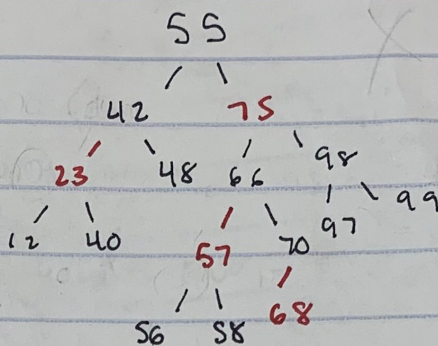 55
42 75
23 48 66 98
12 40 57 70 97 99
56 58 68